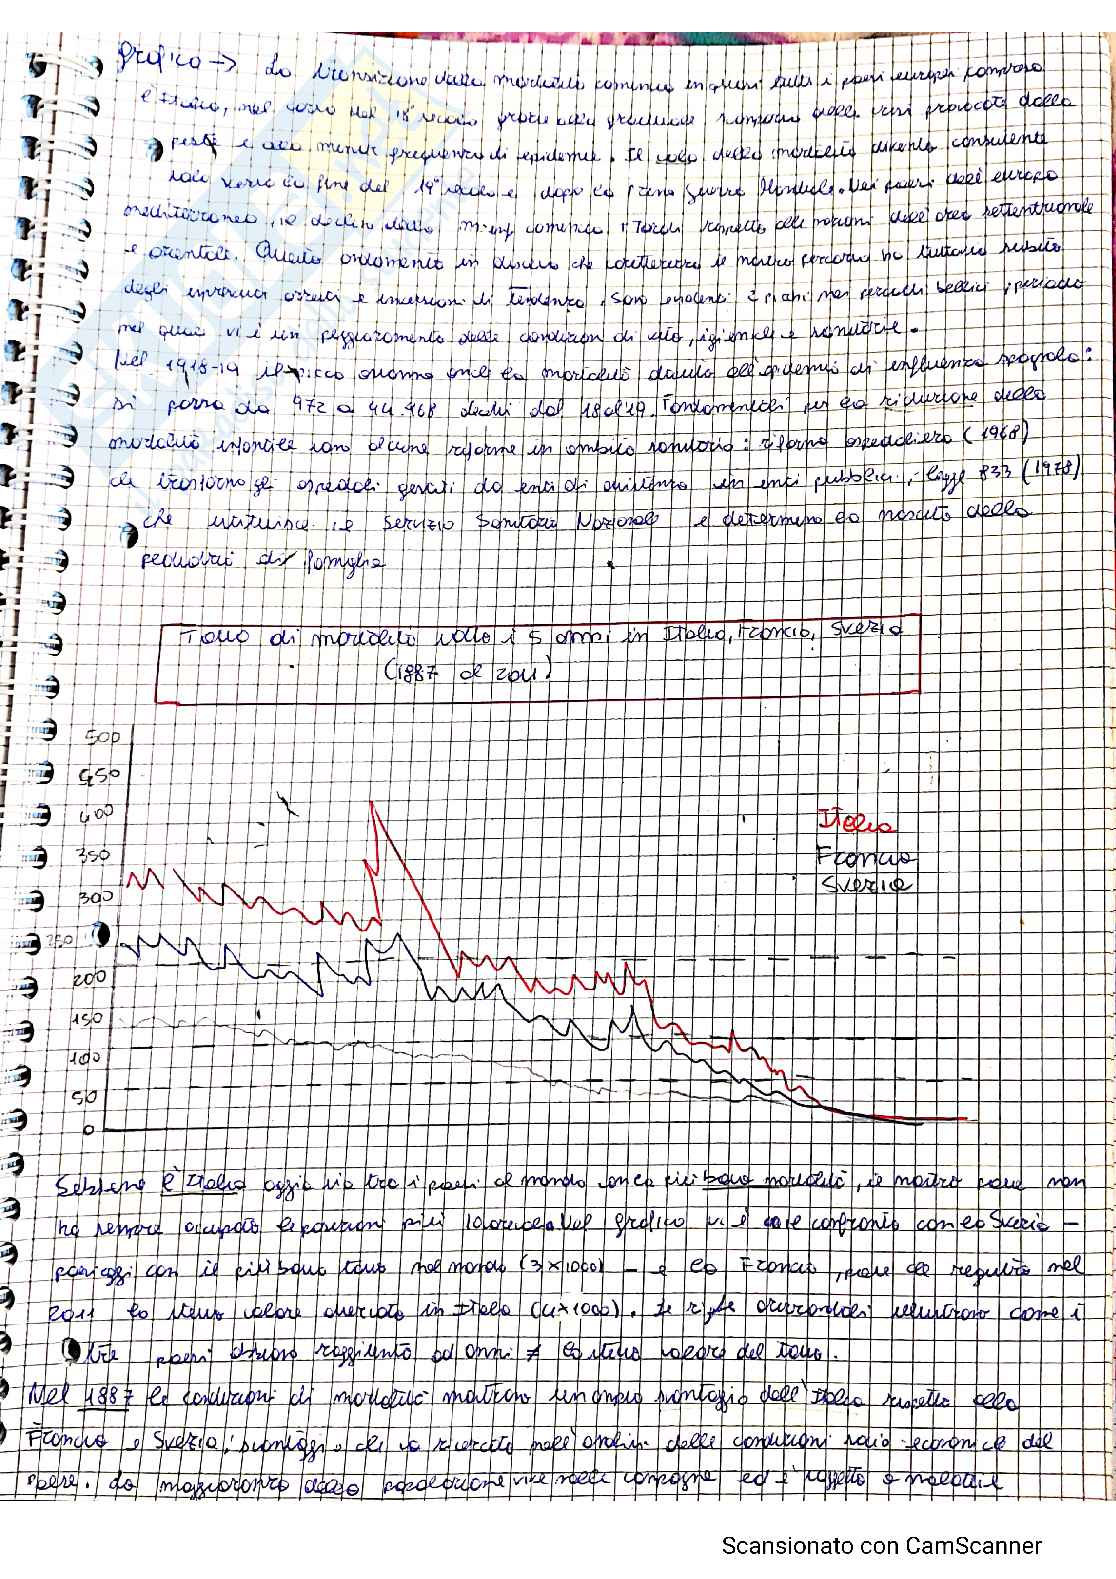 Grafico → La transizione della mortalità comincia in quasi tutti i paesi europei, compreso
l'Italia, nel corso del 18° secolo grazie alla graduale scomparsa delle crisi provocate dalla
peste e alla minor frequenza di epidemie. Il calo della mortalità diventa consistente
solo verso la fine del 19° secolo e dopo la Prima Guerra Mondiale. Nei paesi dell'europa
mediterranea, il declino della comincia in ritardo rispetto alle nazioni dell'area settentrionale
e orientale. Questo andamento in discesa che caratterizza il nostro percorso ha tuttavia subito
degli arresti e inversioni di tendenza. Sono evidenti i picchi nei periodi bellici, periodo
nel quale vi è un peggioramento delle condizioni di vita, igieniche e sanitarie.
Nel 1918-19 il picco anche la mortalità dovuta all'epidemia di influenza spagnola:
si passa da 972 a 44.968 decessi dal 18 al 19. Fondamentali per la riduzione della
mortalità infantile sono alcune riforme in ambito sanitario: riforma ospedaliera (1968)
che trasforma gli ospedali gestiti da enti di assistenza in enti pubblici; legge 833 (1978)
che istituisce il Servizio Sanitario Nazionale e determina la nascita della
pediatria di famiglia
Tasso di mortalità sotto i 5 anni in Italia, Francia, Svezia
(1887 al 2011)
500
450
400
350
300
250
200
150
100
50
0
Italia
Francia
Svezia
Sebbene l'Italia oggi sia tra i paesi al mondo con la più bassa mortalità, il nostro paese non
ha sempre occupato le posizioni più Nel grafico vi è il confronto con la Svezia –
paesi con il più basso tasso nel mondo (3x1000) – e la Francia, paese che registra nel
2011 lo stesso valore in Italia (4x1000). Le righe orizzontali illustrano come i
tre paesi abbiano raggiunto ad anni ≠ lo stesso valore del tasso.
Nel 1887 le condizioni di mortalità mostrano un ampio svantaggio dell'Italia rispetto alla
Francia e Svezia; svantaggio che va ricercato nell'analisi delle condizioni socio-economiche del
paese. La maggioranza della popolazione vive nelle campagne ed è soggetta a malattie
Scansionato con CamScanner